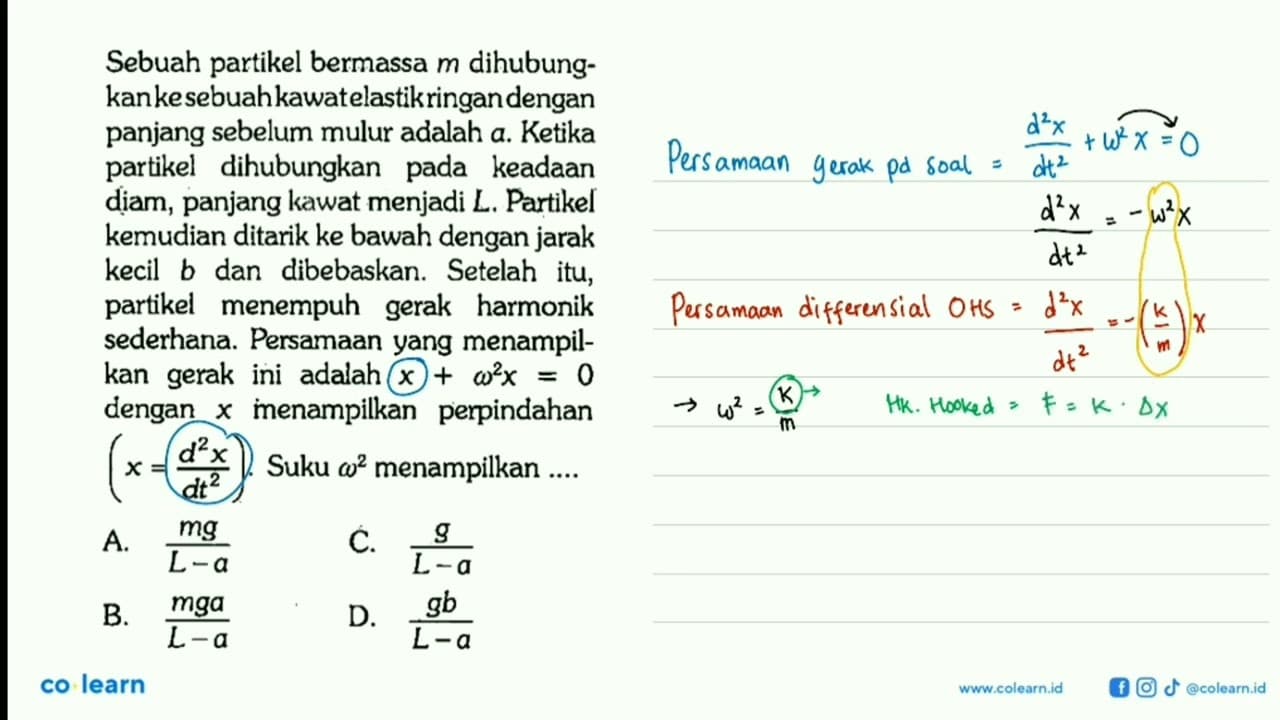 Sebuah partikel bermassa m dihubung-
kan ke sebuah kawat elastik ringan dengan
panjang sebelum mulur adalah a. Ketika
partikel dihubungkan pada keadaan
diam, panjang kawat menjadi L. Partikel
kemudian ditarik ke bawah dengan jarak
kecil b dan dibebaskan. Setelah itu,
partikel menempuh gerak harmonik
sederhana. Persamaan yang menampil-
kan gerak ini adalah x + ω²x = 0
dengan x menampilkan perpindahan
(x = d²x/dt²). Suku ω² menampilkan ....
A. mg/(L-a) C. g/(L-a)
B. mga/(L-a) D. gb/(L-a)
Persamaan gerak pd soal = d²x/dt² + ω² x = 0
d²x/dt² = -ω²x
Persamaan differensial OHS = d²x/dt² = -(k/m)x
→ ω² = k/m → Hk. Hooked = F = k · Δx
co learn
www.colearn.id @colearn.id